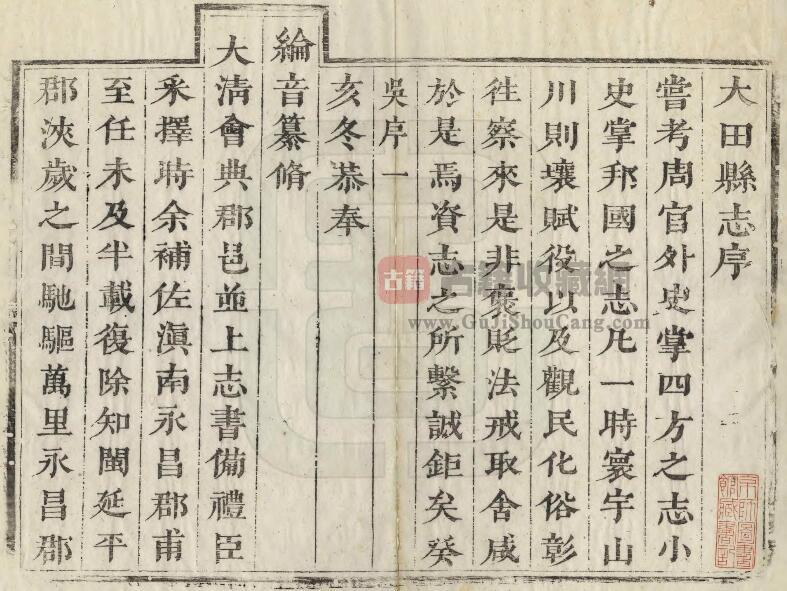 大田縣志序
嘗考周官外史掌四方之志小
史掌邦國之志凡一時寰宇山
川則壤賦役以及觀民化俗彰
徃察來是非褒貶法戒取舍咸
於是焉資志之所繫誠鉅矣癸
吳序 一
亥冬恭奉
綸音纂脩
大清會典郡邑並上志書備禮臣
釆擇時余補佐滇南永昌郡甫
至任未及半載復除知閩延平
郡浹歲之間馳驅萬里永昌郡
古籍
古籍收藏網
www.GuJiShouCang.com
京師圖書
館藏書記